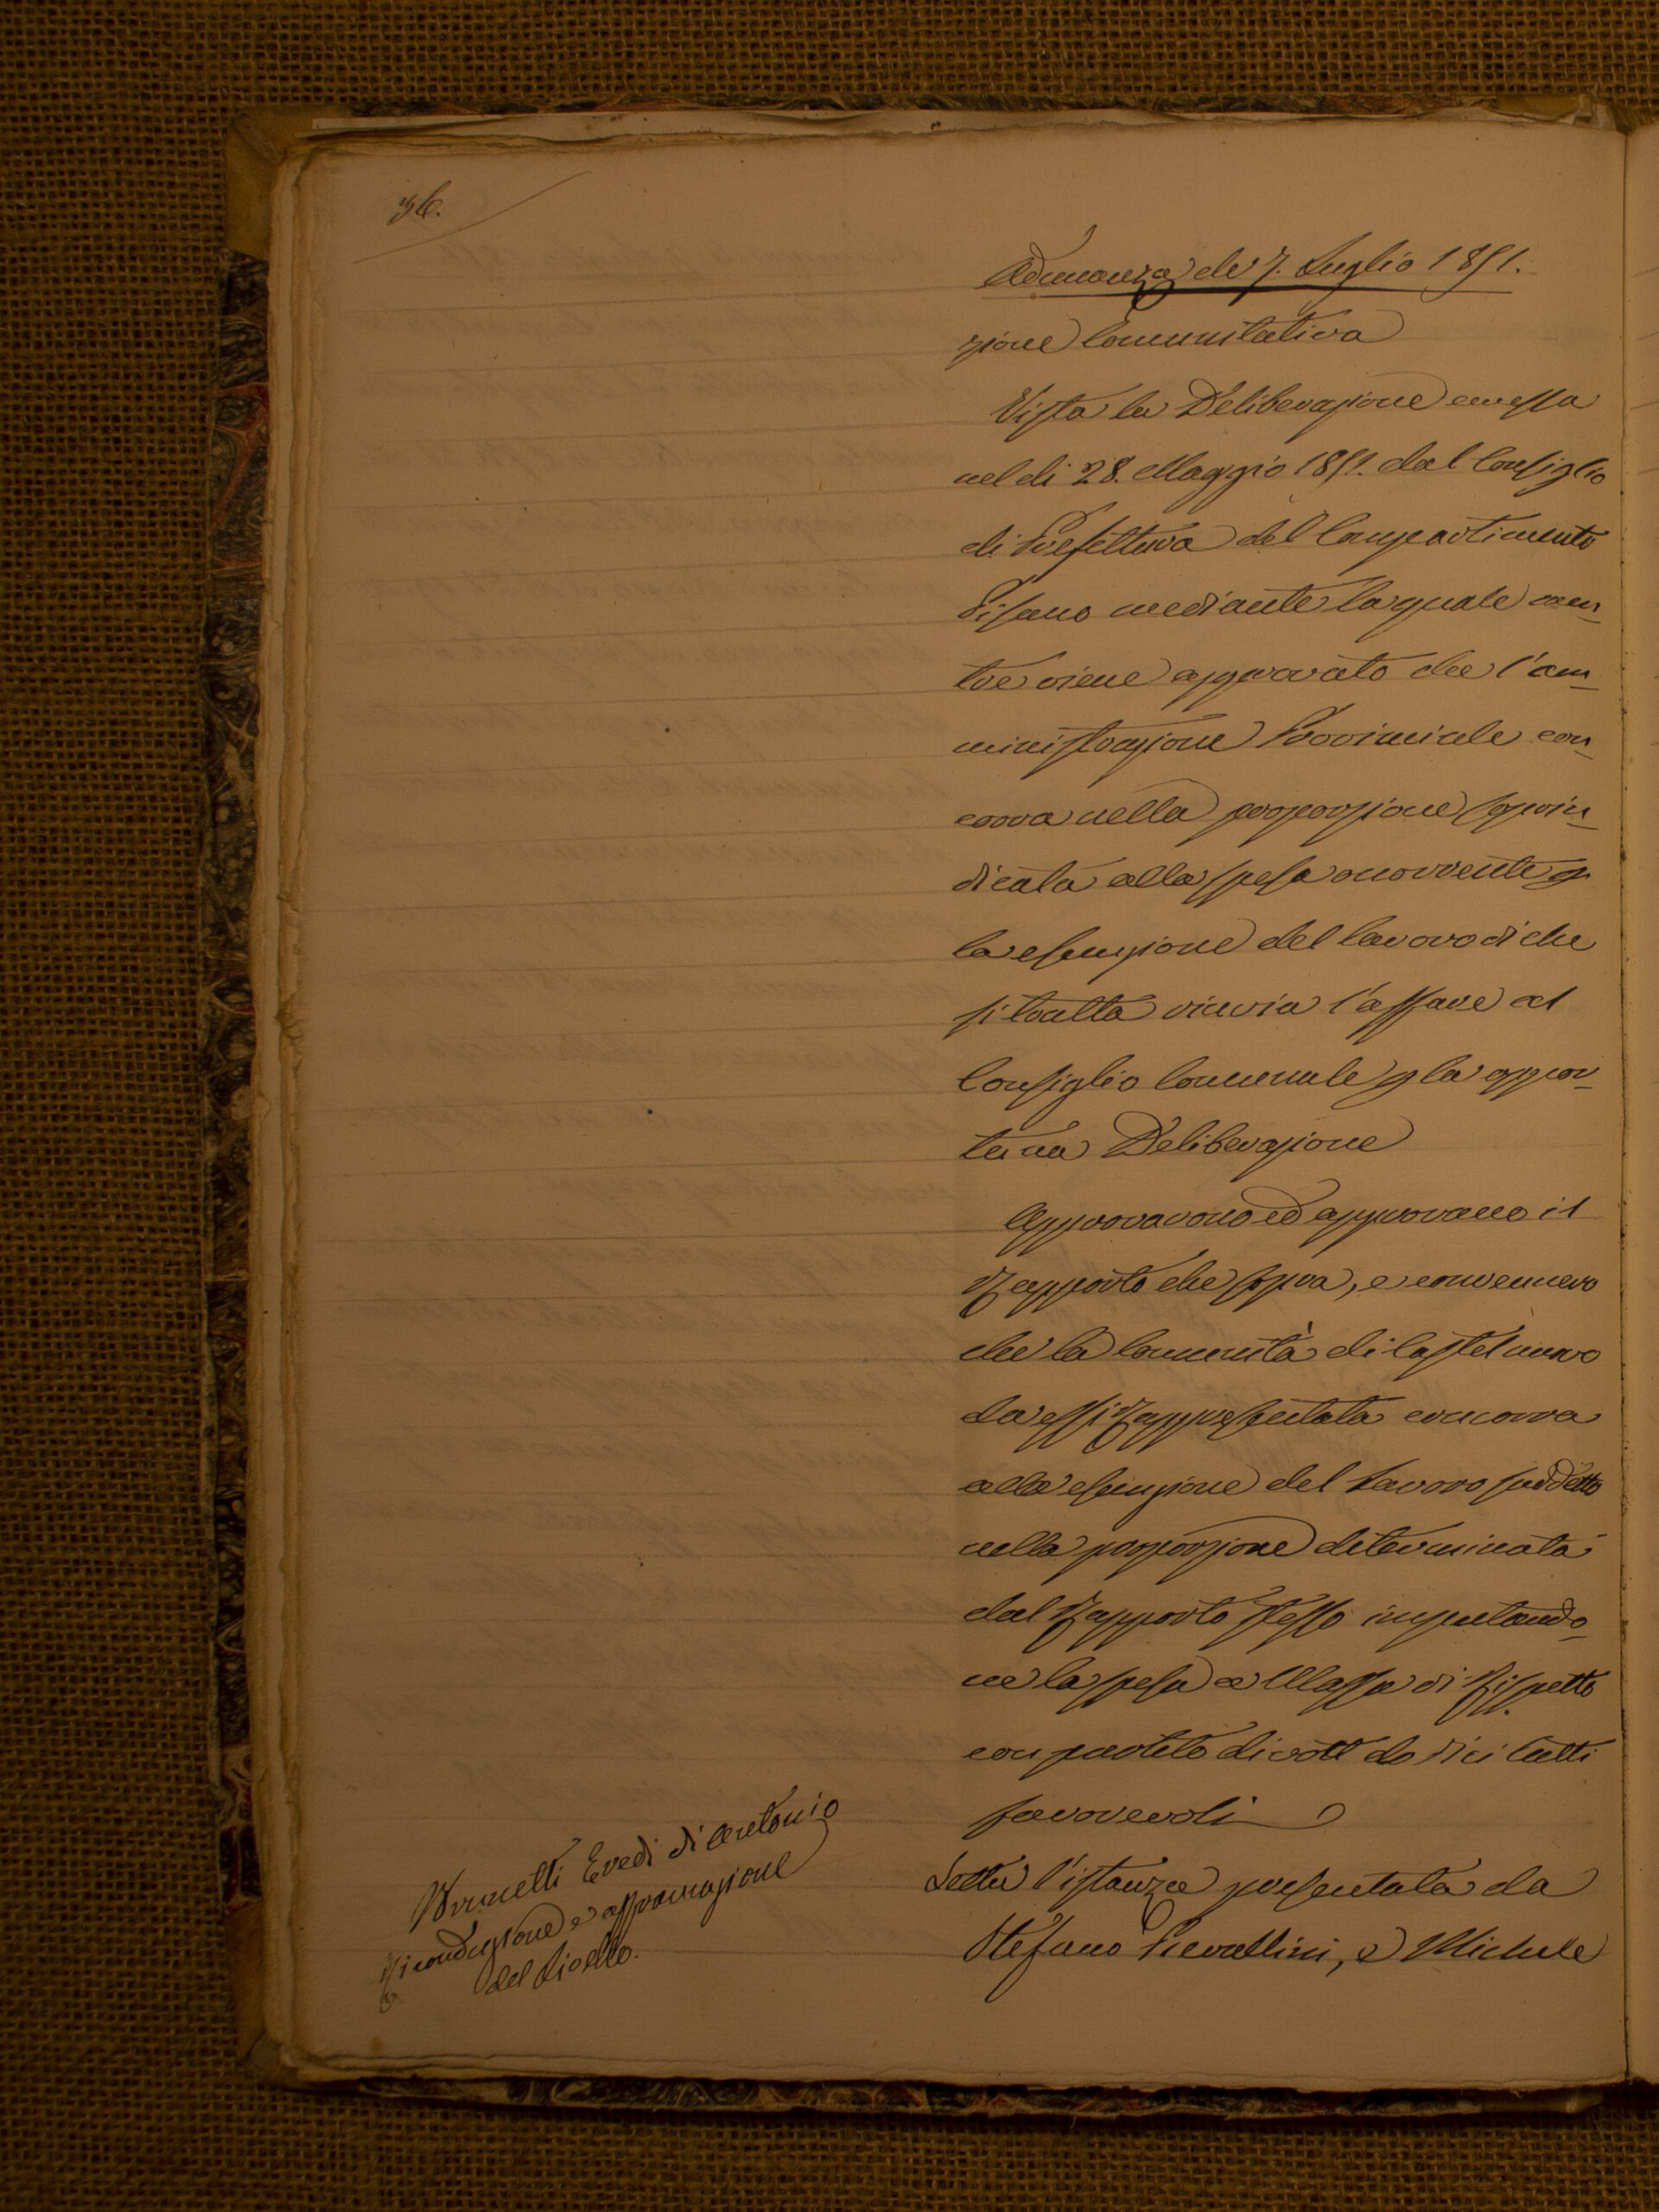 36.
Adunanza de' 7. Luglio 1851.
zione Comunitativa
Vista la Deliberazione emessa
nel dì 28. Maggio 1851. dal Consiglio
di Prefettura del Compartimento
Pisano mediante la quale men-
tre viene approvato che l'am-
ministrazione Provinciale con-
corra nella proporzione soprin-
dicata alla spesa occorrente p
la esecuzione del lavoro di che
si tratta rinvia l'affare al
Consiglio Comunale p la oppor-
tuna Deliberazione
Approvarono ed approvano il
Rapporto che sopra, e convennero
che la Comunità di Castelnuovo
da essi Rappresentata concorra
alla esecuzione del Lavoro suddetto
nella proporzione determinata
dal Rapporto stesso imputando-
ne la spesa a Massa di Rispetto
con partito di voti dodici tutti
favorevoli
Letta l'istanza presentata da
Stefano Cavallini, e Michele
Eredi di Antonio
Riconduzione e affrancazione
del Livello.